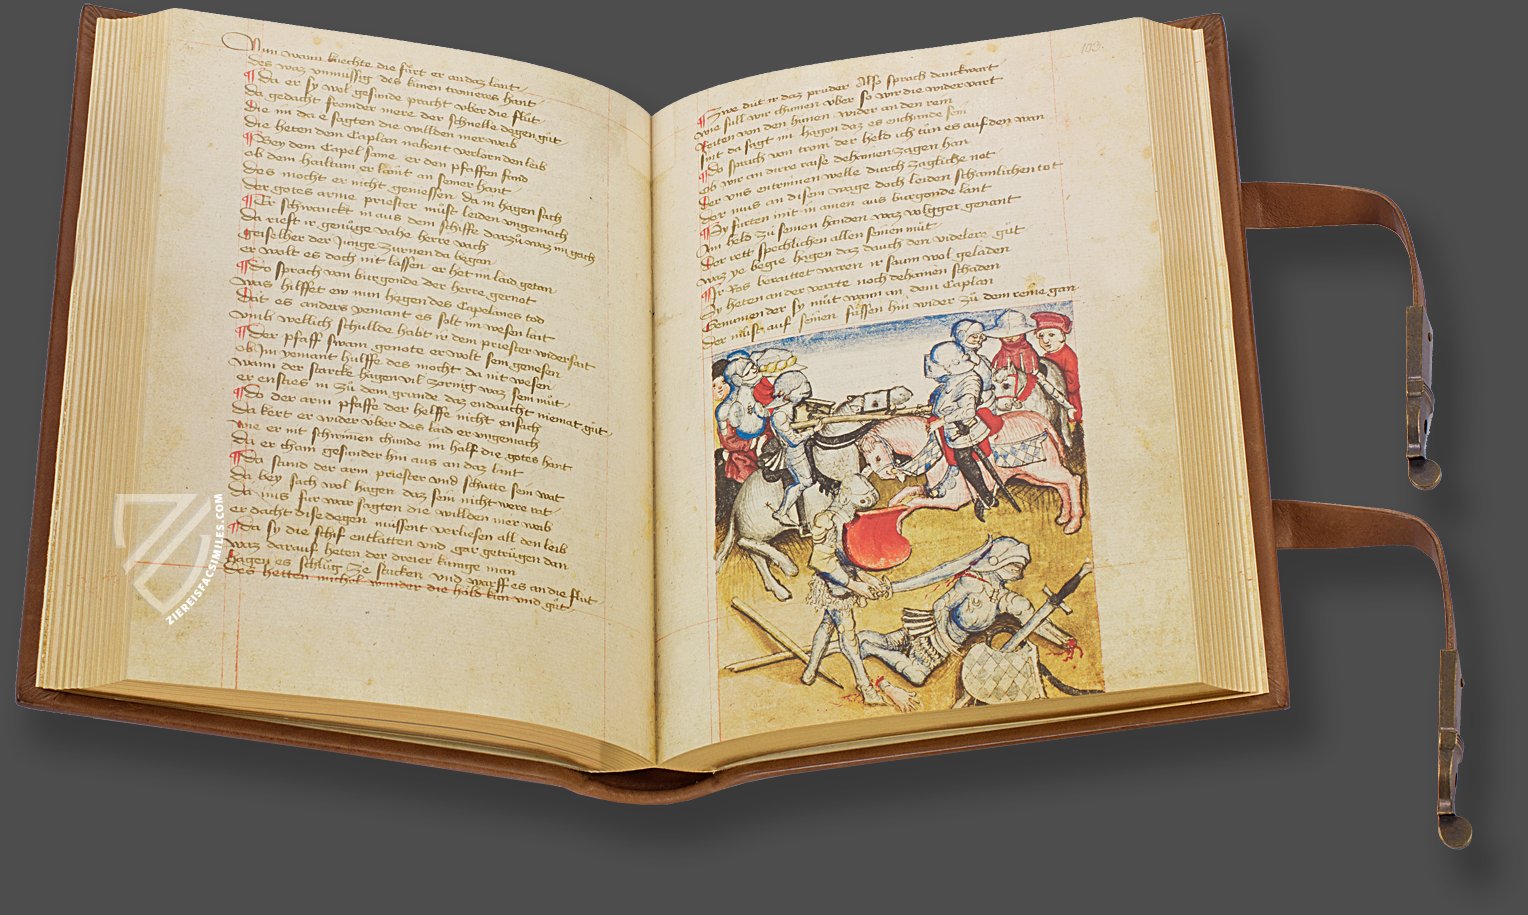 Nun wann knechte die fürt er an daz lant
des waz vnmüssig des künen troneres hant
¶ Da er sy wol gesunde pracht vber die flůt
da gedacht fromder mere der schnelle degen gůt
Die im da e sagten die willden mer weib
die heten dem Caplan nahent verlorn den leib
¶ Bey dem Capel same er den pfaffen fand
ob dem hailtum er laint an seiner hant
des mocht er nicht geniessen da in hagen sach
der gotes arme priester můst leiden vngemach
¶ Er schwanckt in aus dem schiffe darzů waz im gach
da rieft ir genůge vahe herre vach
geiselher der Junge zurnen da began
er wolt es doch nit lassen er het im laid getan
¶ Do sprach von burgonde der herre gernot
was hilffet ew nun hagen des Capelanes tod
Dät es anders yemant es solt im wesen lait
vmb wellich schullde habt ir dem priester widersait
¶ Der pfaff swam genote er wolt sein genesen
ob Im yemant hulffe des mocht da nit wesen
wann der starcke hagen vil zornig waz sein můt
er ensties in zů dem grunde daz endaucht niemat gůt
¶ Do der arm pfaffe der helffe nicht ensach
da kert er wider vber des laid er vngemach
wie er nit schwimen chunde im half die gotes hant
da er cham gesunder hin aus an daz lant
¶ Da stund der arm priester vnd schutte sein wat
da bey sach wol hagen daz sein nicht were rat
Da mis für ware sagten die willden mer weib
er dacht dise degen mussent verliesen all den leib
¶ Da sy die schif entlatten vnd gar getrůgen dan
waz darauf heten der dreier künige man
hagen es schlůg ze stucken vnd warff es an die flůt
des hetten michel wunder die held kün vnd gůt
103.
¶ Zwe důt ir daz průder Also sprach danckwart
wie süll wir chumen vber so wir die wider vart
Reiten von den hünen wider an den rein
sint da sagt in hagen daz es enchunde sein
¶ Do sprach von troni der held ich tůn es auf den wan
ob wir an dirre raise dehainen zagen han
Der vns entrinnen welle durch zagliche not
der mus an disem wage doch leiden schamlichen tot
¶ Sy fürten mit in ainen aus burgonde lant
Ain held zů seinen handen waz volgger genant
Der rett spechlichen allen seinen můt
waz ye begie hagen daz dauch den videlere gůt
¶ Ir Ros beraittet waren ir saum wol geladen
Sy heten an der verte noch dehainen schaden
Genumen der sy můt wann an dem Caplan
der můst auf seinen füssen hin wider zů dem reine gan
ZIEREISFACSIMILES.COM